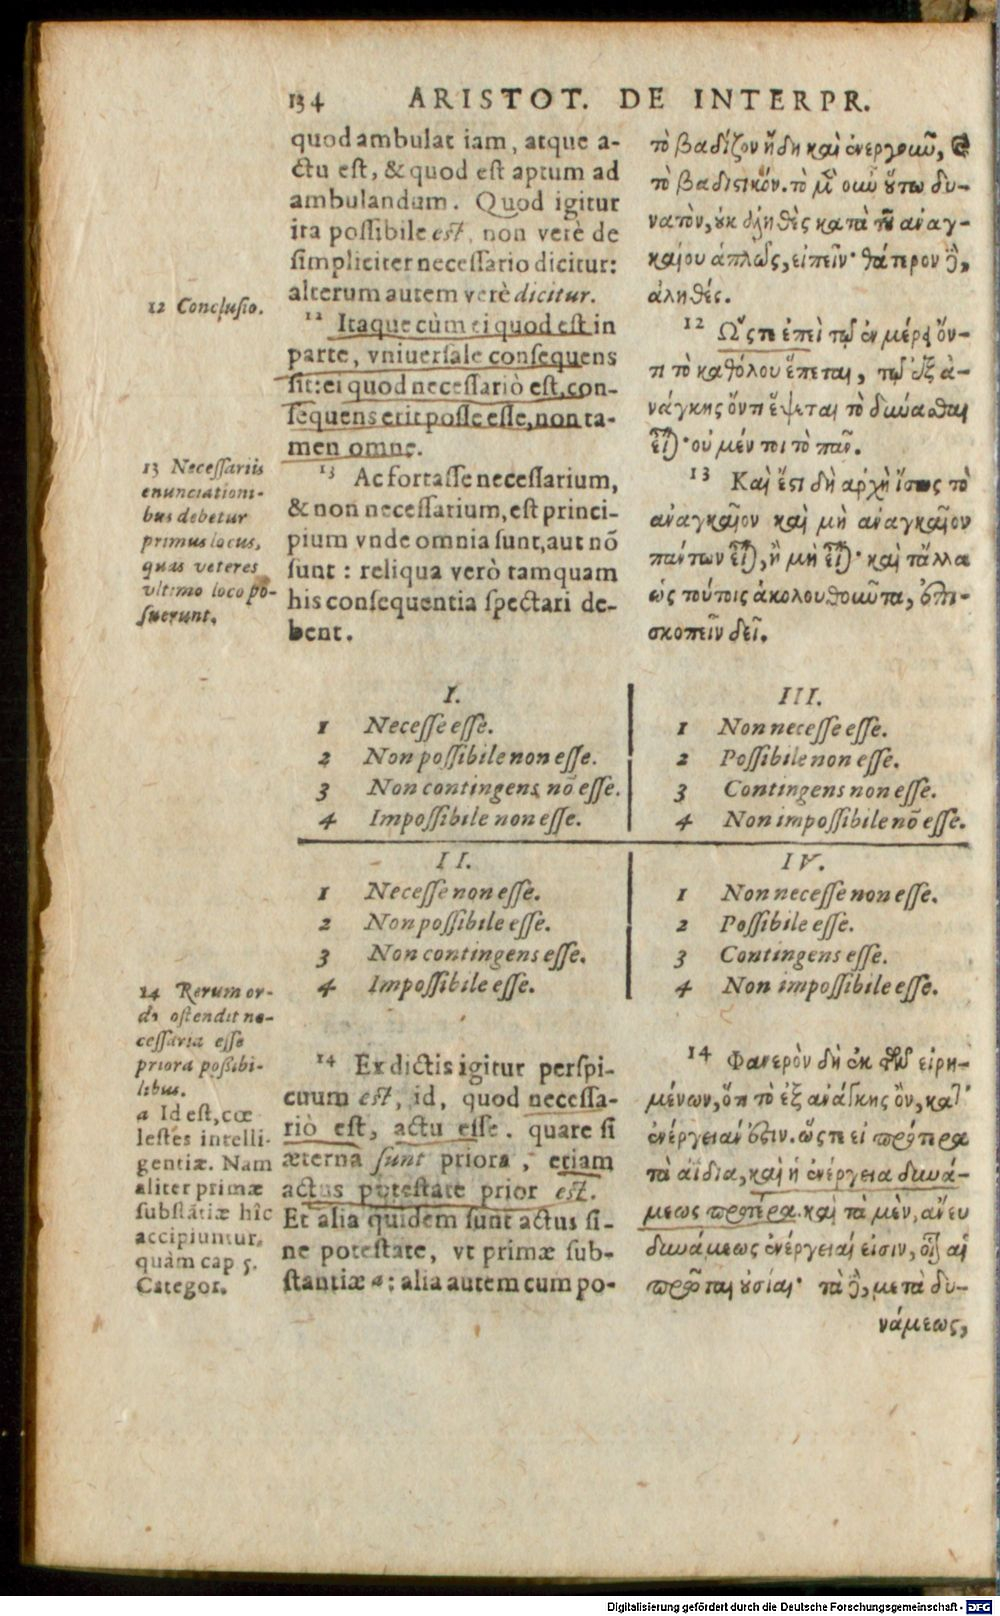 134 ARISTOT. DE INTERPR.
quod ambulat iam, atque a-
ctu est, & quod est aptum ad
ambulandum. Quod igitur
ita possibile est, non verè de
simpliciter necessario dicitur:
alterum autem verè dicitur.
12 Itaque cùm ei quod est in
parte, vniuersale consequens
sit: ei quod necessariò est, con-
sequens erit posse esse, non ta-
men omne.
13 Ac fortasse necessarium,
& non necessarium, est princi-
pium vnde omnia sunt, aut nō
sunt : reliqua verò tamquam
his consequentia spectari de-
bent.
12 Conclusio.
13 Necessariis
enunciationi-
bus debetur
primus locus,
quas veteres
vltimo loco po-
suerunt.
τὸ βαδίζον ἤδη καὶ ἐνεργοιοῦν, καὶ
τὸ βαδιστικόν. τὸ μὲν οὖν οὕτω δυ-
νατὸν, οὐκ ἀληθὲς κατὰ τοῦ ἀναγ-
καίου ἁπλῶς, εἰπεῖν· θάτερον δὲ,
ἀληθές.
12 Ὥστε ἐπεὶ τῷ ἐν μέρει ὄν-
τι τὸ καθόλου ἕπεται, τῷ ἐξ ἀ-
νάγκης ὄντι ἕψεται τὸ δύνασθαι
εἶναι· οὐ μέν τοι τὸ πᾶν.
13 Καὶ ἔστι δὴ ἀρχὴ ἴσως τὸ
ἀναγκαῖον καὶ μὴ ἀναγκαῖον
πάντων εἶναι, ἢ μὴ εἶναι· καὶ τἄλλα
ὡς τούτοις ἀκολουθοῦντα, ἐπι-
σκοπεῖν δεῖ.
I.
1 Necesse esse.
2 Non possibile non esse.
3 Non contingens nō esse.
4 Impossibile non esse.
III.
1 Non necesse esse.
2 Possibile non esse.
3 Contingens non esse.
4 Non impossibile nō esse.
II.
1 Necesse non esse.
2 Non possibile esse.
3 Non contingens esse.
4 Impossibile esse.
IV.
1 Non necesse non esse.
2 Possibile esse.
3 Contingens esse.
4 Non impossibile esse.
14 Rerum or-
do ostendit ne-
cessaria esse
priora possibi-
libus.
a Id est, cœ
lestes intelli-
gentiæ. Nam
aliter primæ
substātiæ hîc
accipiuntur,
quàm cap 5.
Categor.
14 Ex dictis igitur perspi-
cuum est, id, quod necessa-
riò est, actu esse. quare si
æterna sunt priora, etiam
actus potestate prior est.
Et alia quidem sunt actus si-
ne potestate, vt primæ sub-
stantiæ a: alia autem cum po-
14 Φανερὸν δὴ ἐκ τῶν εἰρη-
μένων, ὅτι τὸ ἐξ ἀνάγκης ὂν, κατ'
ἐνέργειαν ἐστιν. ὥστε εἰ πρότερα
τὰ ἀΐδια, καὶ ἡ ἐνέργεια δυνά-
μεως προτέρα. καὶ τὰ μὲν, ἄνευ
δυνάμεως ἐνέργειαί εἰσιν, οἷον αἱ
πρῶται οὐσίαι· τὰ δὲ, μετὰ δυ-
νάμεως,
Digitalisierung gefördert durch die Deutsche Forschungsgemeinschaft - DFG